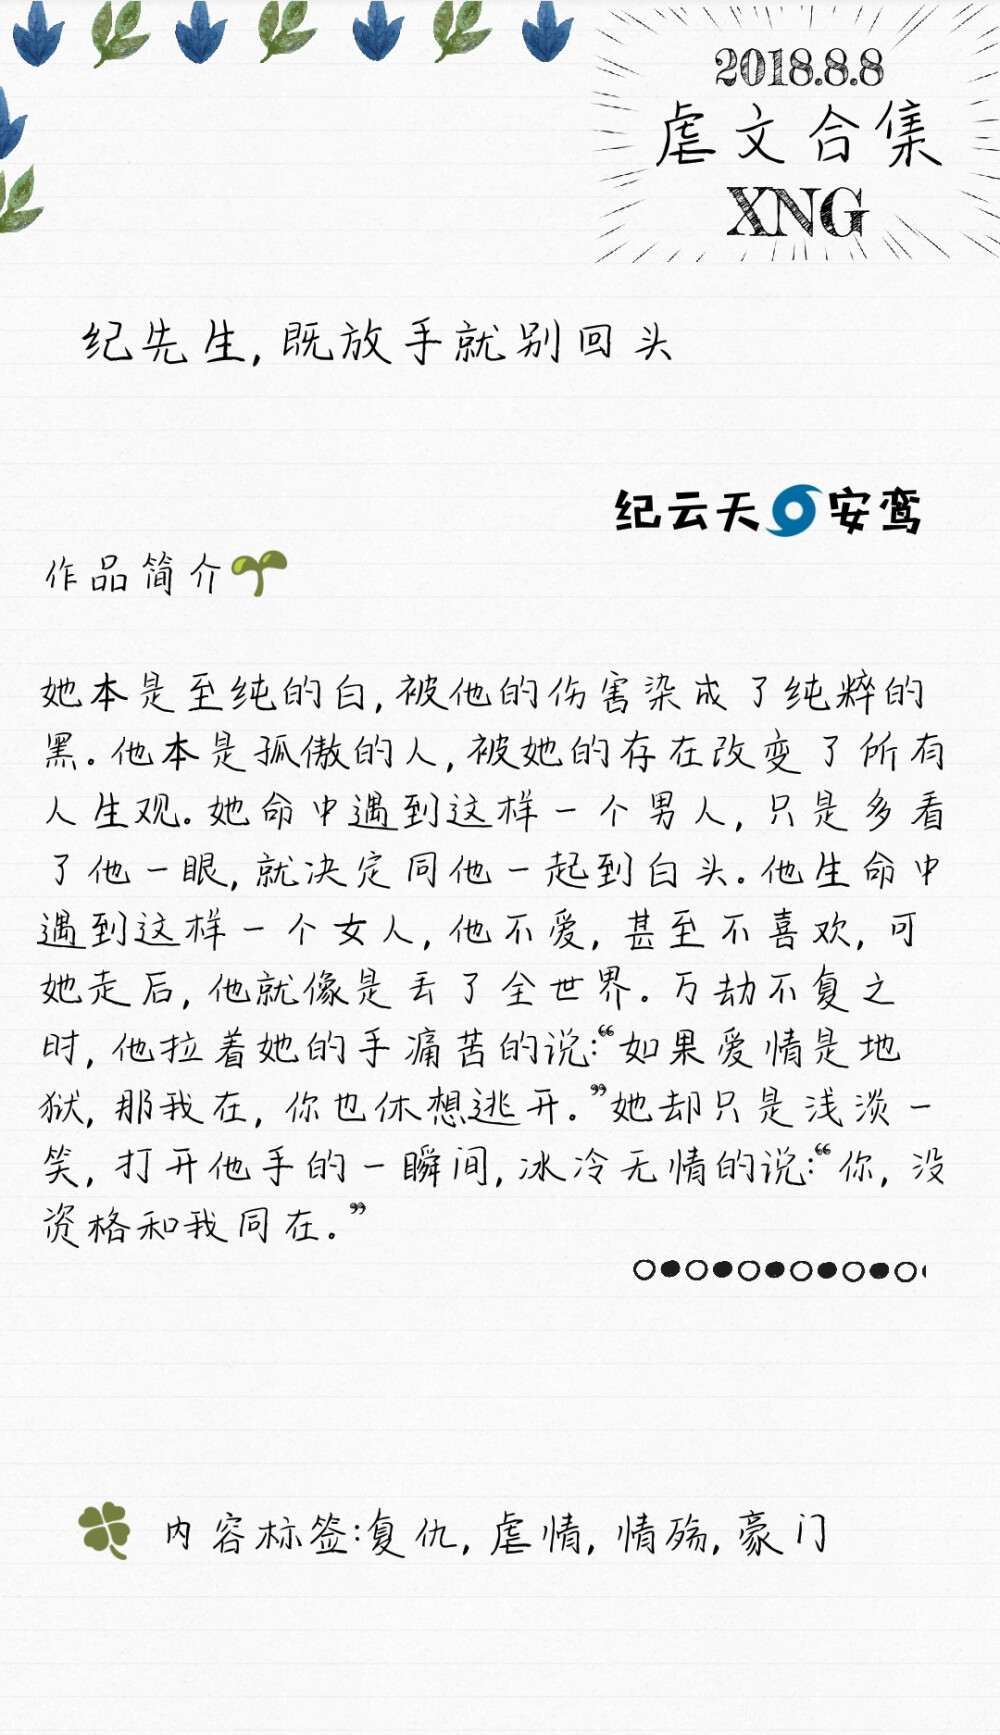 2018.8.8
虐文合集
XNG
纪先生,既放手就别回头
纪云天🌀安鸾
作品简介🌱
她本是至纯的白,被他的伤害染成了纯粹的
黑。他本是孤傲的人,被她的存在改变了所有
人生观。她命中遇到这样一个男人,只是多看
了他一眼,就决定同他一起到白头。他生命中
遇到这样一个女人,他不爱,甚至不喜欢,可
她走后,他就像是丢了全世界。万劫不复之
时,他拉着她的手痛苦的说:“如果爱情是地
狱,那我在,你也休想逃开。”她却只是浅淡一
笑,打开他手的一瞬间,冰冷无情的说:“你,没
资格和我同在。”
🍀 内容标签:复仇,虐情,情殇,豪门